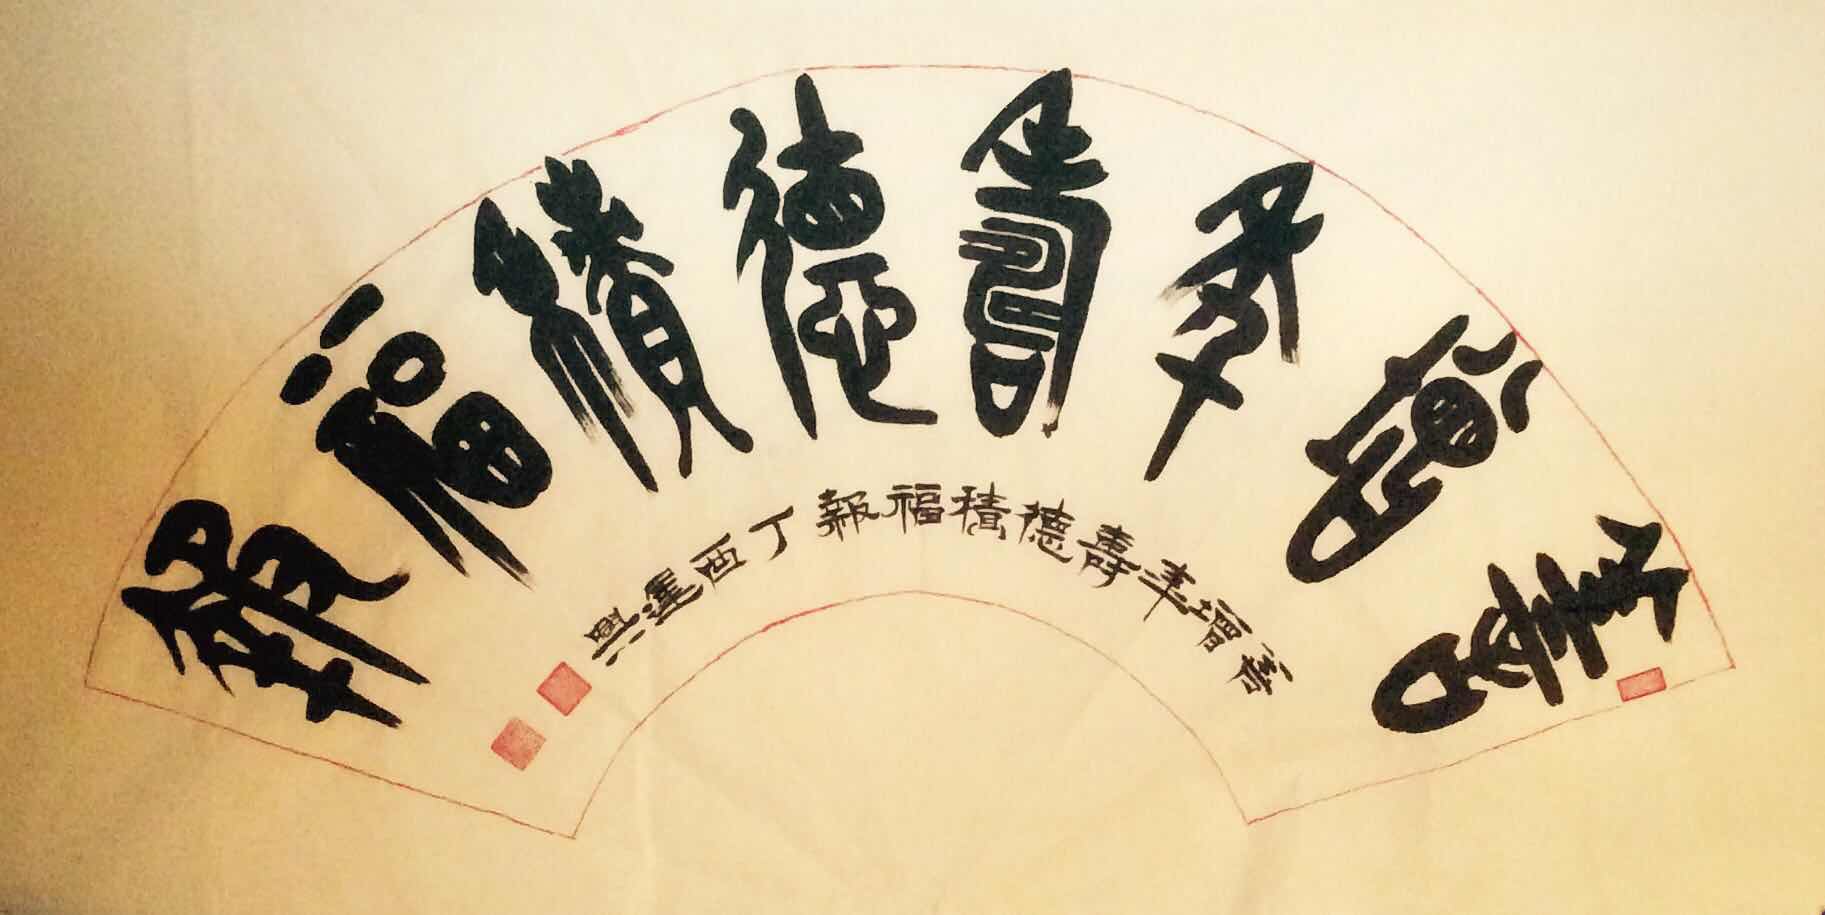 善增年壽德積福報
善增年壽德積福報丁酉運興